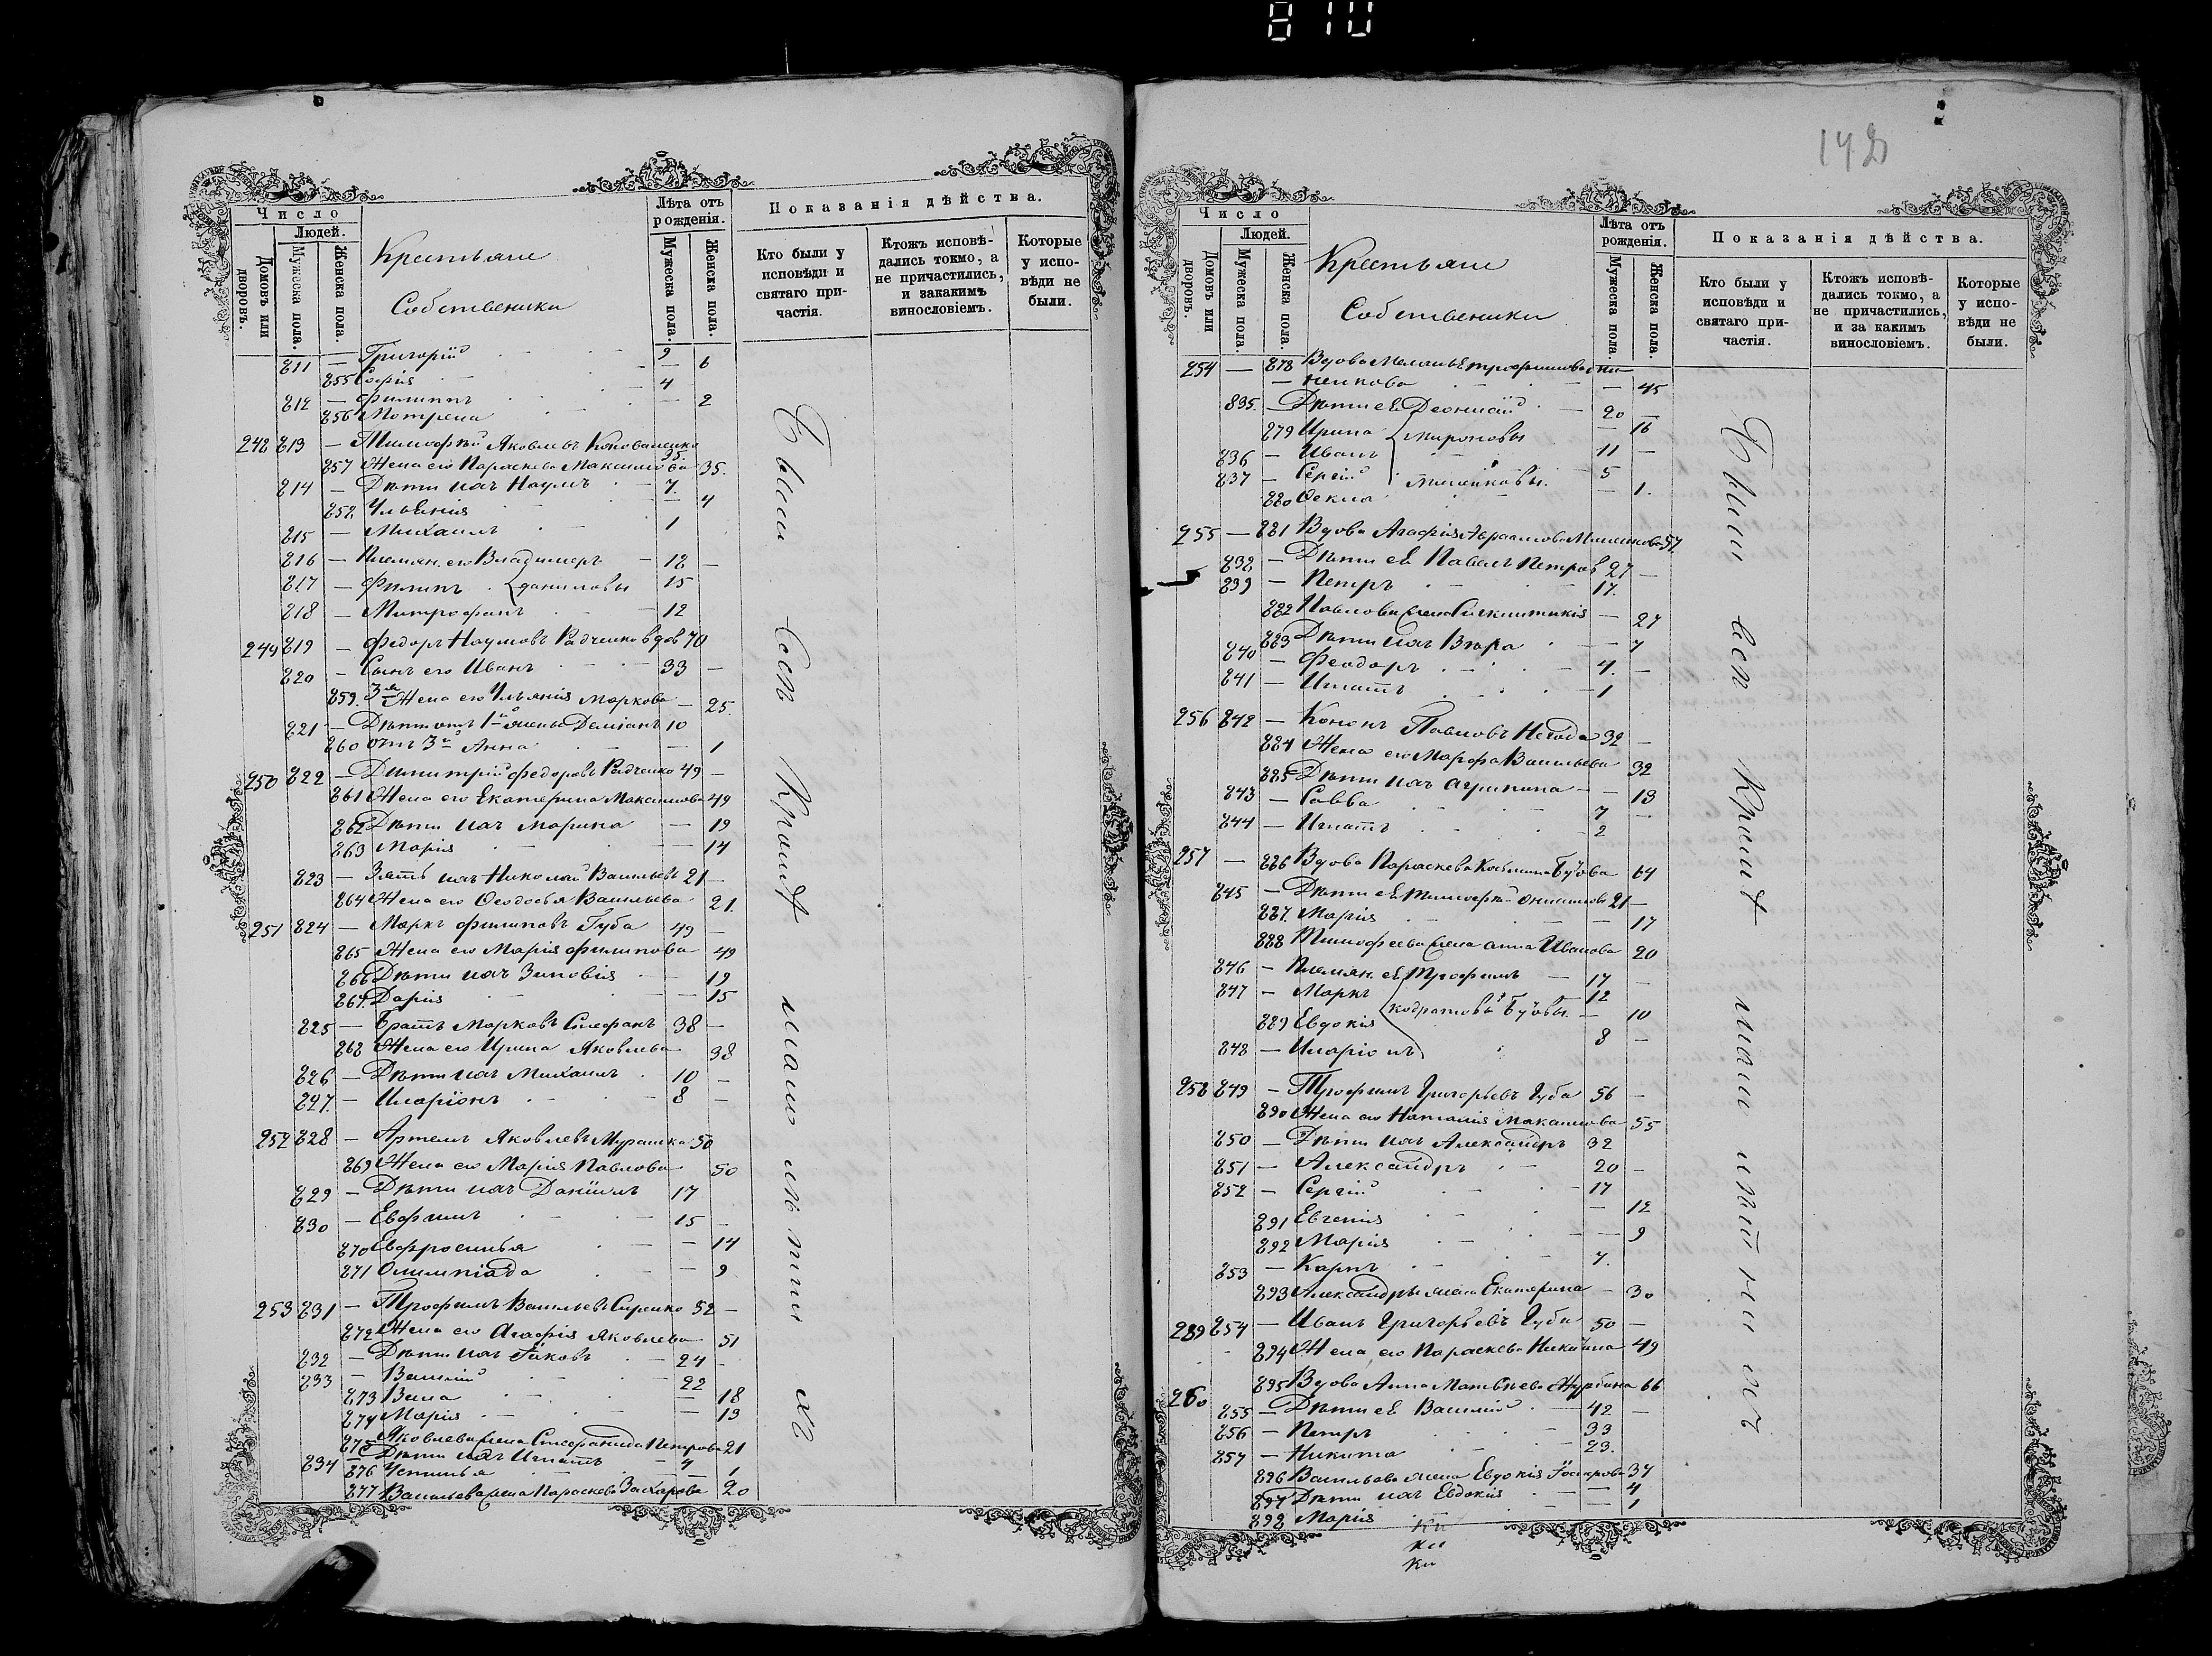 810
Число
Людей.
Домовъ или дворовъ.
Мужеска пола.
Женска пола.
Крестьяне
Собственики
Лѣта отъ рожденія.
Мужеска пола.
Женска пола.
Показанія дѣйства.
Кто были у исповѣди и святаго причастія.
Ктожъ исповѣдались токмо, а не причастились, и закакимъ винословіемъ.
Которые у исповѣди не были.
811 — Григорій 9 —
855 Софія — 6
812 — Филиппъ 4 —
856 Мотрена — 2
248 813 — Тимофей Яковлевъ Коноваленко 35.
857 Жена его Параскева Максимова 35.
814 — Дѣти ихъ Наумъ 7.
858 Ульянія — 4
815 — Михаилъ 1
816 — Племян. его Владимеръ 18 —
817 — Филипъ Даниловы 15
818 — Митрофанъ 12
249 819 — Федоръ Наумовъ Радченко вдов 70
820 — Сынъ его Иванъ 33 —
859. 3я Жена его Ульянія Маркова — 25.
821 — Дѣти отъ 1й жены Деміанъ 10
860 отъ 3й Анна — 1
250 822 — Димитрій Федоровъ Радченко 49 —
861 Жена его Екатерина Максимова 49
862 Дѣти ихъ Марина — 19
863 Марія — 14
823 — Зять ихъ Николай Васильевъ 21 —
864 Жена его Феодосья Васильева 21.
251 824 — Маркъ Филиповъ Губа 49 —
865 Жена его Марія Филипова 49
866 Дѣти ихъ Зиновія — 19
867. Дарія — 15
825 — Братъ Марковъ Стефанъ 38 —
868 Жена его Ирина Яковлева 38
826 — Дѣти ихъ Михаилъ 10 —
827. — Иларіонъ 8 —
252 828 — Артемъ Яковлевъ Мурашка 50
869 Жена его Марія Павлова 50
829 — Дѣти ихъ Даніилъ 17
830 — Евфимъ 15 —
870 Евфросинья — 14
871 Олимпіада — 9
253 831 — Трофимъ Васильевъ Сиренко 52 —
872 Жена его Агафія Яковлева 51
832 — Дѣти ихъ Іаковъ 24 —
833 — Василій 22
873 Васса 18
874 Марія — 13
875 Яковлева жена Стефанида Петрова 21
834 — Дѣти ихъ Игнатъ 4
876 Устинья — 1
877 Васильева жена Параскева Захарова 20
Сѣли всѣ кромѣ малолѣтнихъ
148
Число
Людей.
Домовъ или дворовъ.
Мужеска пола.
Женска пола.
Крестьяне
Собственики
Лѣта отъ рожденія.
Мужеска пола.
Женска пола.
Показанія дѣйства.
Кто были у исповѣди и святаго причастія.
Ктожъ исповѣдались токмо, а не причастились, и за какимъ винословіемъ.
Которые у исповѣди не были.
254 — 878 Вдова Меланья Трофимова
— 45
835. — Дѣти ея Деонисій 20 —
879 Ирина Мироновы — 16
836 — Иванъ 11 —
837 — Сергій 5
880 Фекла — 1.
255 — 881 Вдова Агафія Авраамова 57
838 — Дѣти ея Павелъ Петров 27 —
839 — Петръ 17.
882 Павлова жена — 27
883 Дѣти ихъ Вѣра — 7
840 — Феодоръ 4. —
841 — Игнатъ 1
256 842 — Кононъ Павловъ Негода 32 —
884 Жена его Марфа Васильева 32
885 Дѣти ихъ Агрипина — 13
843 — Савва 7 —
844 — Игнатъ 2
257 — 886 Вдова Параскева 64
845 — Дѣти ея Тимофей Онисимовъ 21 —
887. Марія — 17
888 Тимофеева жена Анна Иванова 20
846 — Племян. ея Трофимъ 17 —
847 — Маркъ Кодратовы 12
889 Евдокія — 10
848 — Иларіонъ 8 —
258 849 — Трофимъ Григорьевъ Губа 56 —
890 Жена его Наталія Максимова 55
850 — Дѣти ихъ Александръ 32
851 — Александръ 20 —
852 — Сергій 17
891 Евгенія — 12
892 Марія — 9
853 — Карпъ 7.
893 Александра жена Екатерина — 30
259 854 — Иванъ Григорьевъ Губа 50 —
894 Жена его Параскева Никитина 49
260 895 Вдова Анна Матвѣева Журбина 66
855 — Дѣти ея Василій 42 —
856 — Петръ 33
857 — Никита 23.
896 Васильева жена Евдокія 37
897 Дѣти ихъ Евдокія — 4
898 Марія — 1